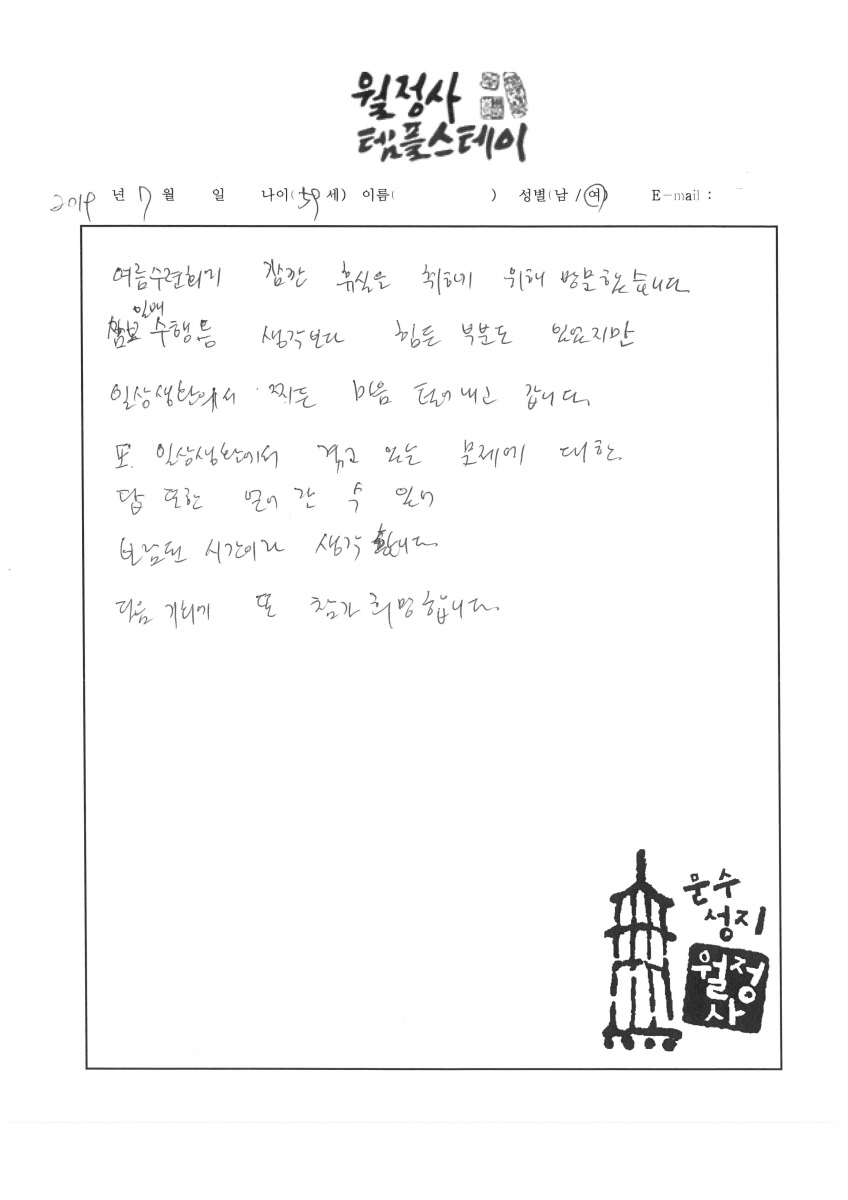 월정사
템플스테이
2019 년 7 월 일 나이(59 세) 이름( ) 성별(남 / 여) E-mail :
여름수련회기 잠깐 휴식을 취하기 위해 방문했습니다
일배
삼보 수행 등 생각보다 힘든 부분도 있었지만
일상생활에서 찌든 마음 털어내고 갑니다.
또 일상생활에서 겪고 있는 문제에 대한
답 또한 얻어 갈 수 있어
보람된 시간이라 생각 합니다.
다음 기회에 또 참가 희망합니다.
문수
성지
월정
사